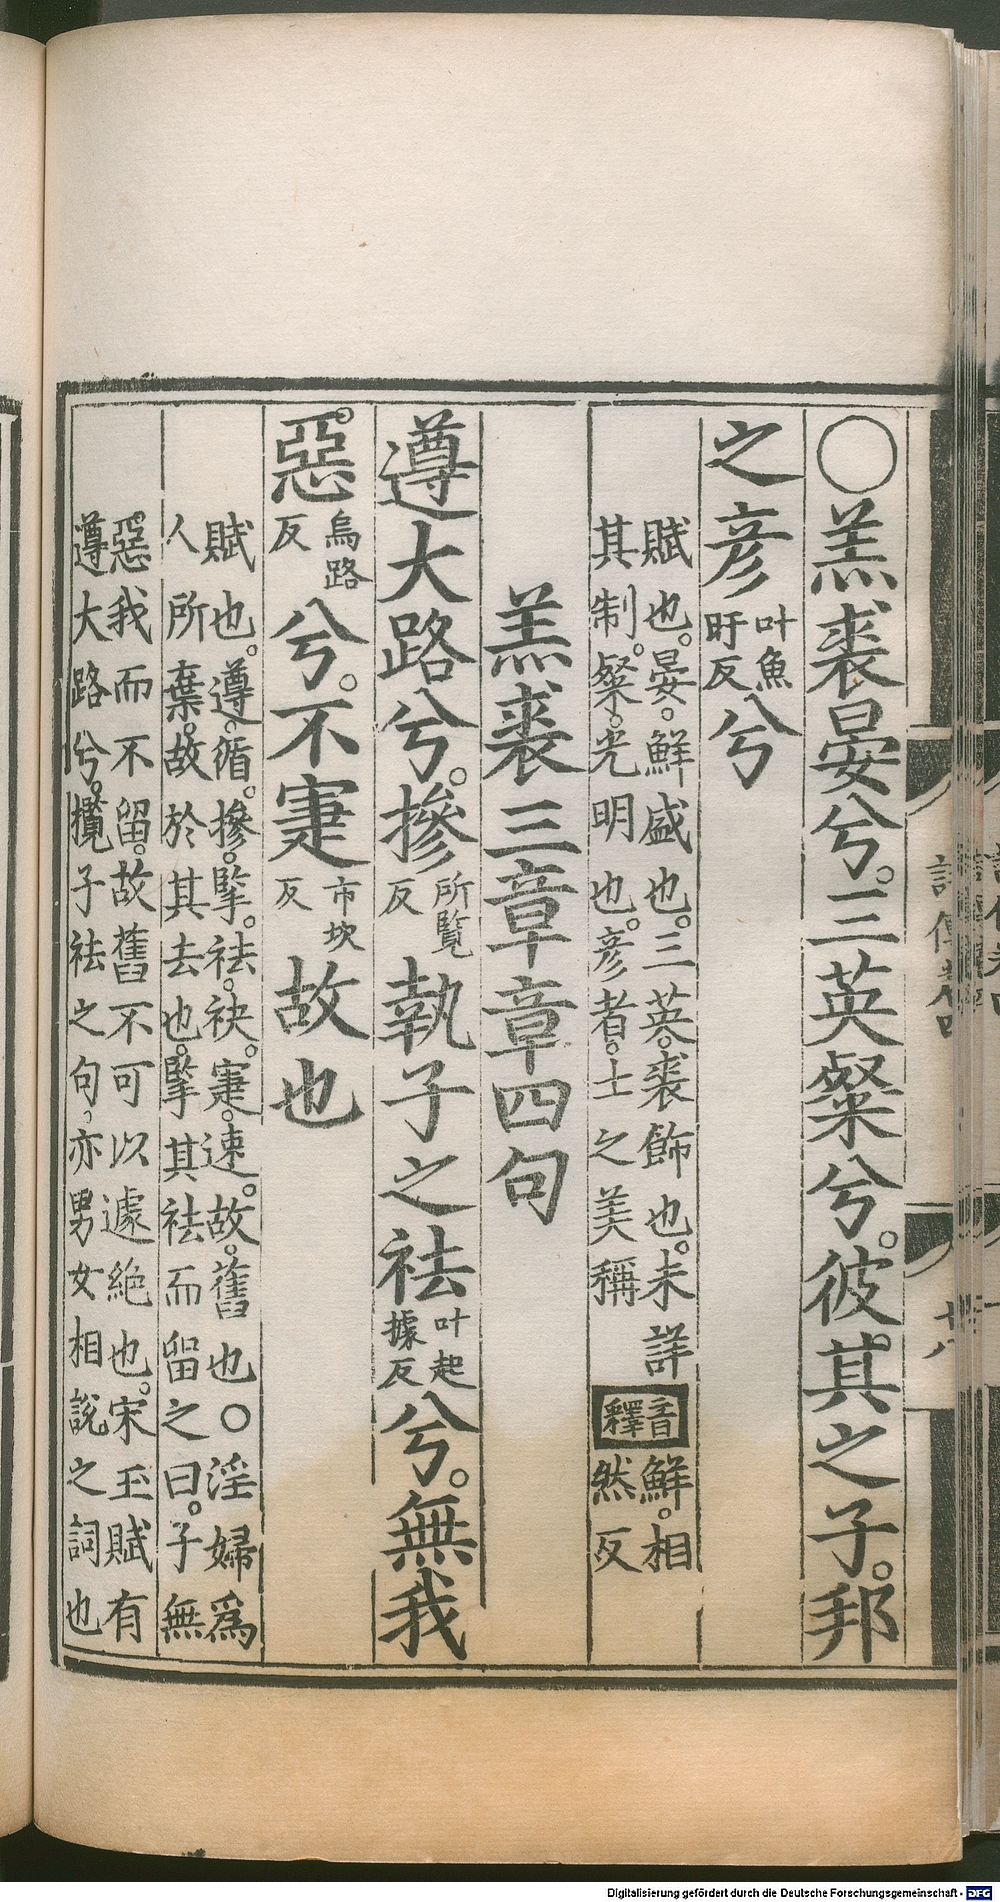 ○羔裘晏兮。三英粲兮。彼其之子。邦
之彥叶魚旰反兮
賦也。晏。鮮盛也。三英。裘飾也。未詳
其制。粲。光明也。彥者。士之美稱
音釋
鮮。相
然反
羔裘三章章四句
遵大路兮。摻所覽反執子之袪叶起據反兮。無我
惡烏路反兮。不寁市坎反故也
賦也。遵。循。摻。擥。袪。袂。寁。速。故。舊也○淫婦為
人所棄。故於其去也。擥其袪而留之曰。子無
惡我而不留。故舊不可以遽絕也。宋玉賦有
遵大路兮。攬子袪之句。亦男女相說之詞也
詩傳卷四
十八
Digitalisierung gefördert durch die Deutsche Forschungsgemeinschaft - DFG